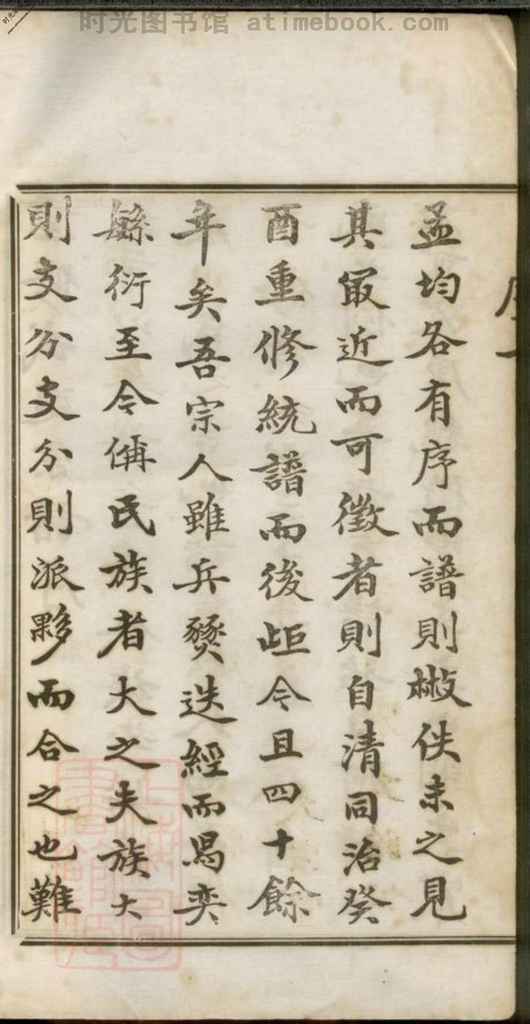 时光图书馆 atimebook.com
孟均各有序而譜則㪚佚未之見
其㝡近而可徵者則自清同治癸
酉重修統譜而後歫今且四十餘
年矣吾宗人雖兵燹迭經而曷奕
緐衍至今偁民族者大之夫族大
則支分支分則派夥而合之也難